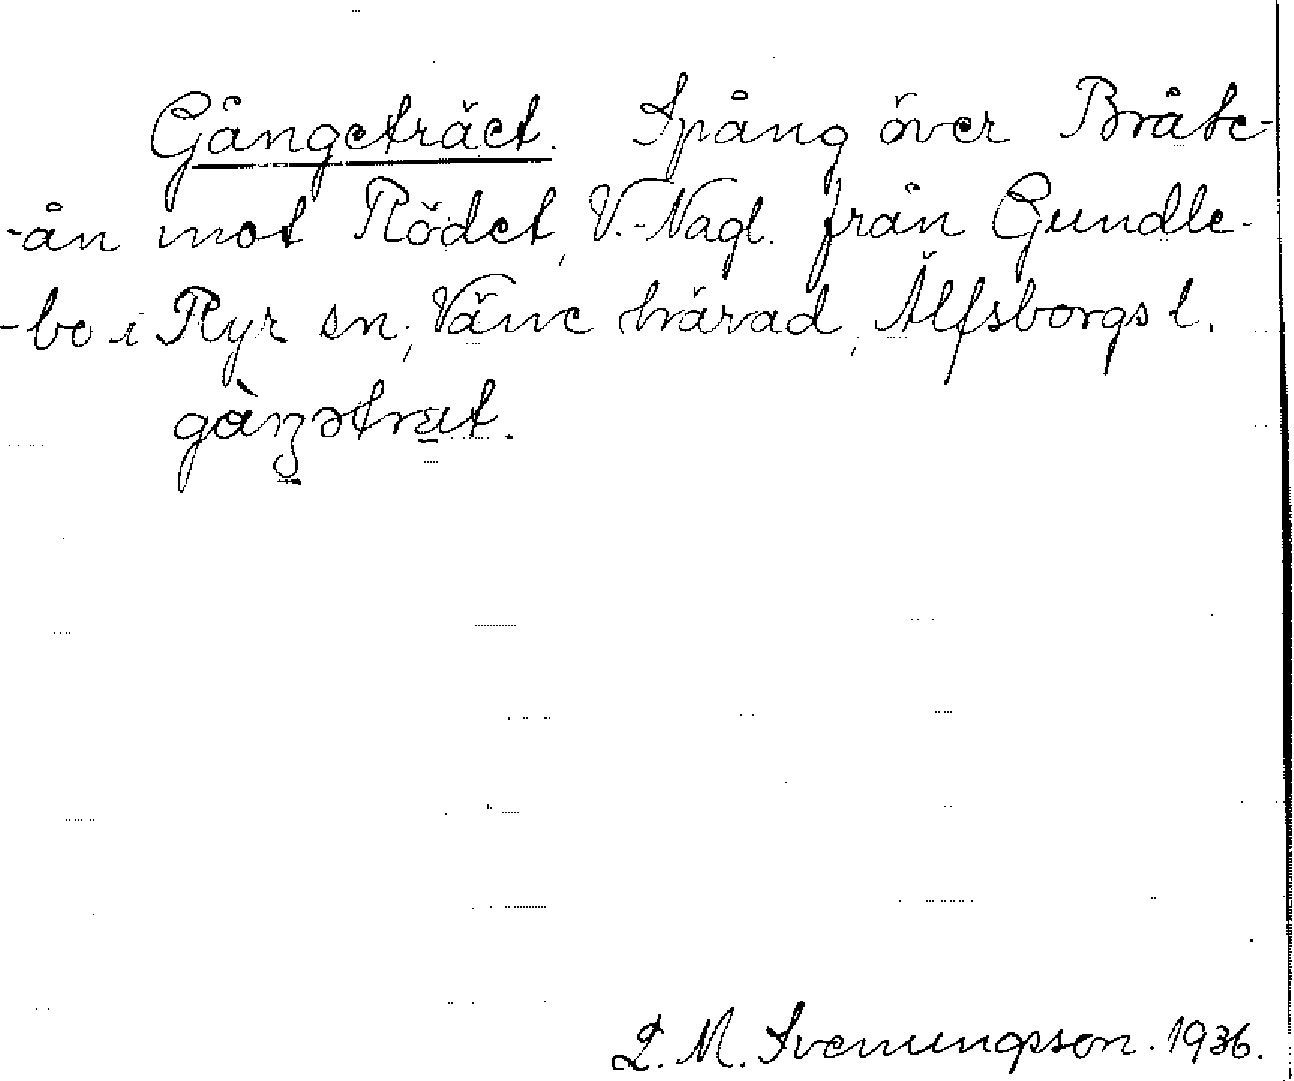 Gångeträet. Spång över Bråte-
-ån mot Rödet, V.-Nagl. från Gundle-
-bo i Ryr sn, Väne härad, Älfsborgs l.
gàŋətræt.
L. M. Svenungsson. 1936.